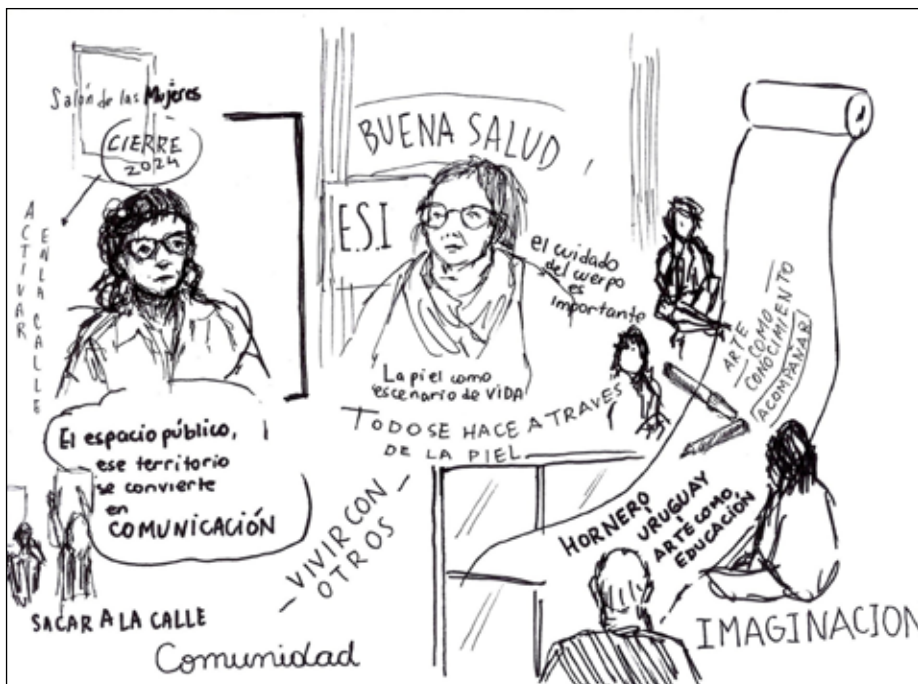 Salón de las Mujeres
CIERRE
2024
ACTIVAR
EN LA CALLE
El espacio público,
ese territorio
se convierte
en
COMUNICACIÓN
SACAR A LA CALLE
Comunidad
BUENA SALUD
E.S.I
el cuidado
del cuerpo
es
importante
La piel como
escenario de VIDA
TODO SE HACE A TRAVÉS
DE LA PIEL
VIVIR CON
OTROS
ARTE
COMO
CONOCIMIENTO
ACOMPAÑAR
HORNERO
URUGUAY
ARTE COMO
EDUCACIÓN
IMAGINACION